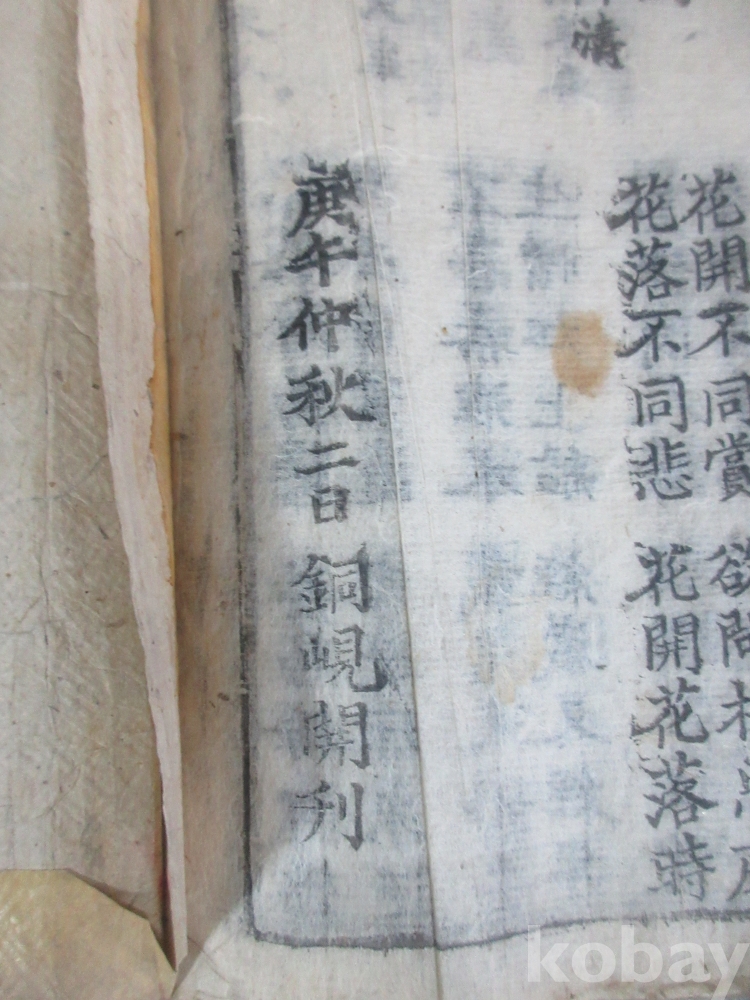 花開不同賞 欲問相思處
花落不同悲 花開花落時
情
庚午仲秋二日 銅峴開刊
kobay